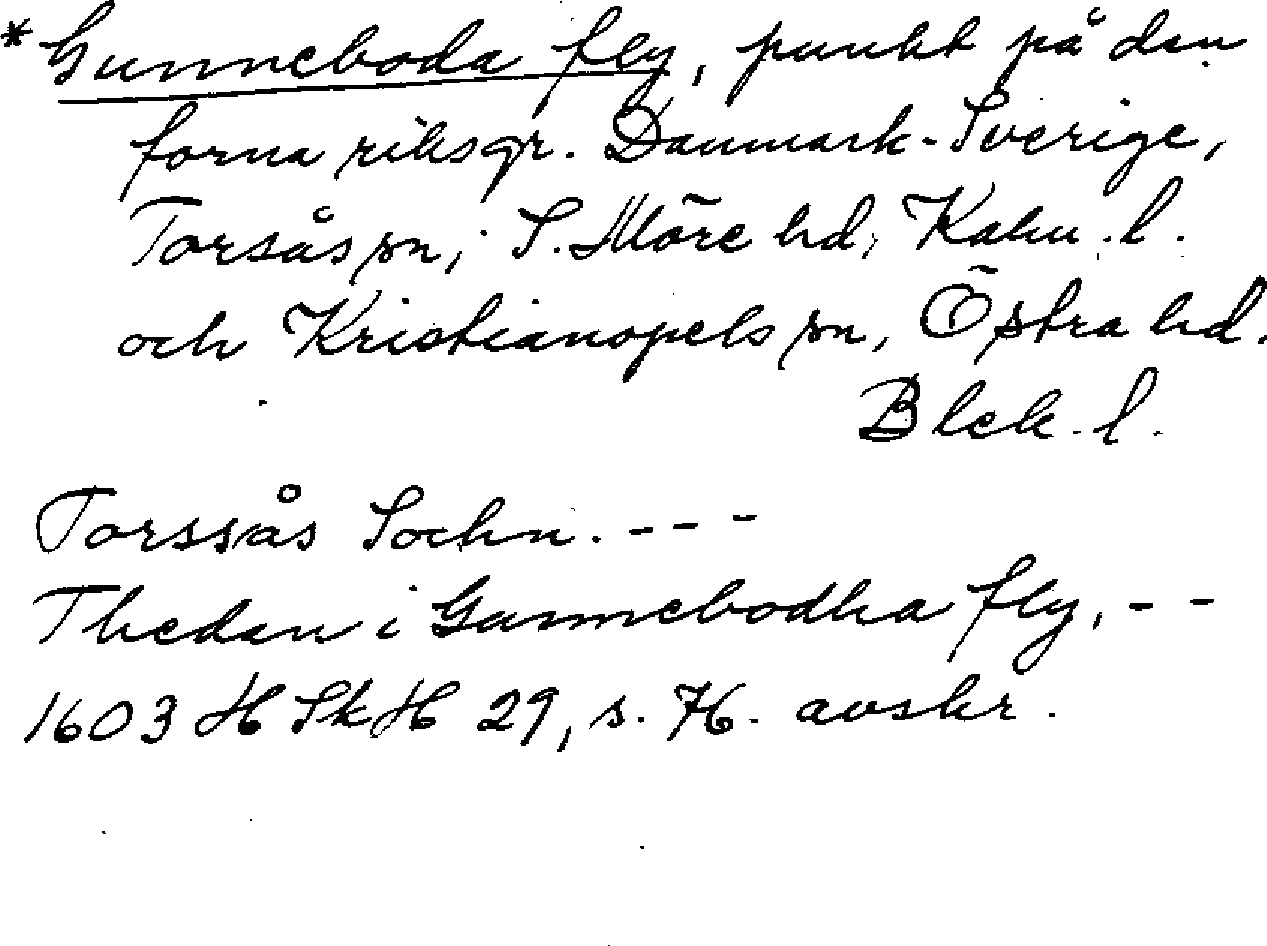 *Gunneboda fly, punkt på den
forna riksgr. Danmark-Sverige,
Torsås sn, S. Möre hd, Kalm. l.
och Kristianopels sn, Östra hd.
Blek. l.
Torssås Sochn. - - -
Thedan i Gunnebodha fly, - -
1603 HSkH 29, s. 76. avskr.